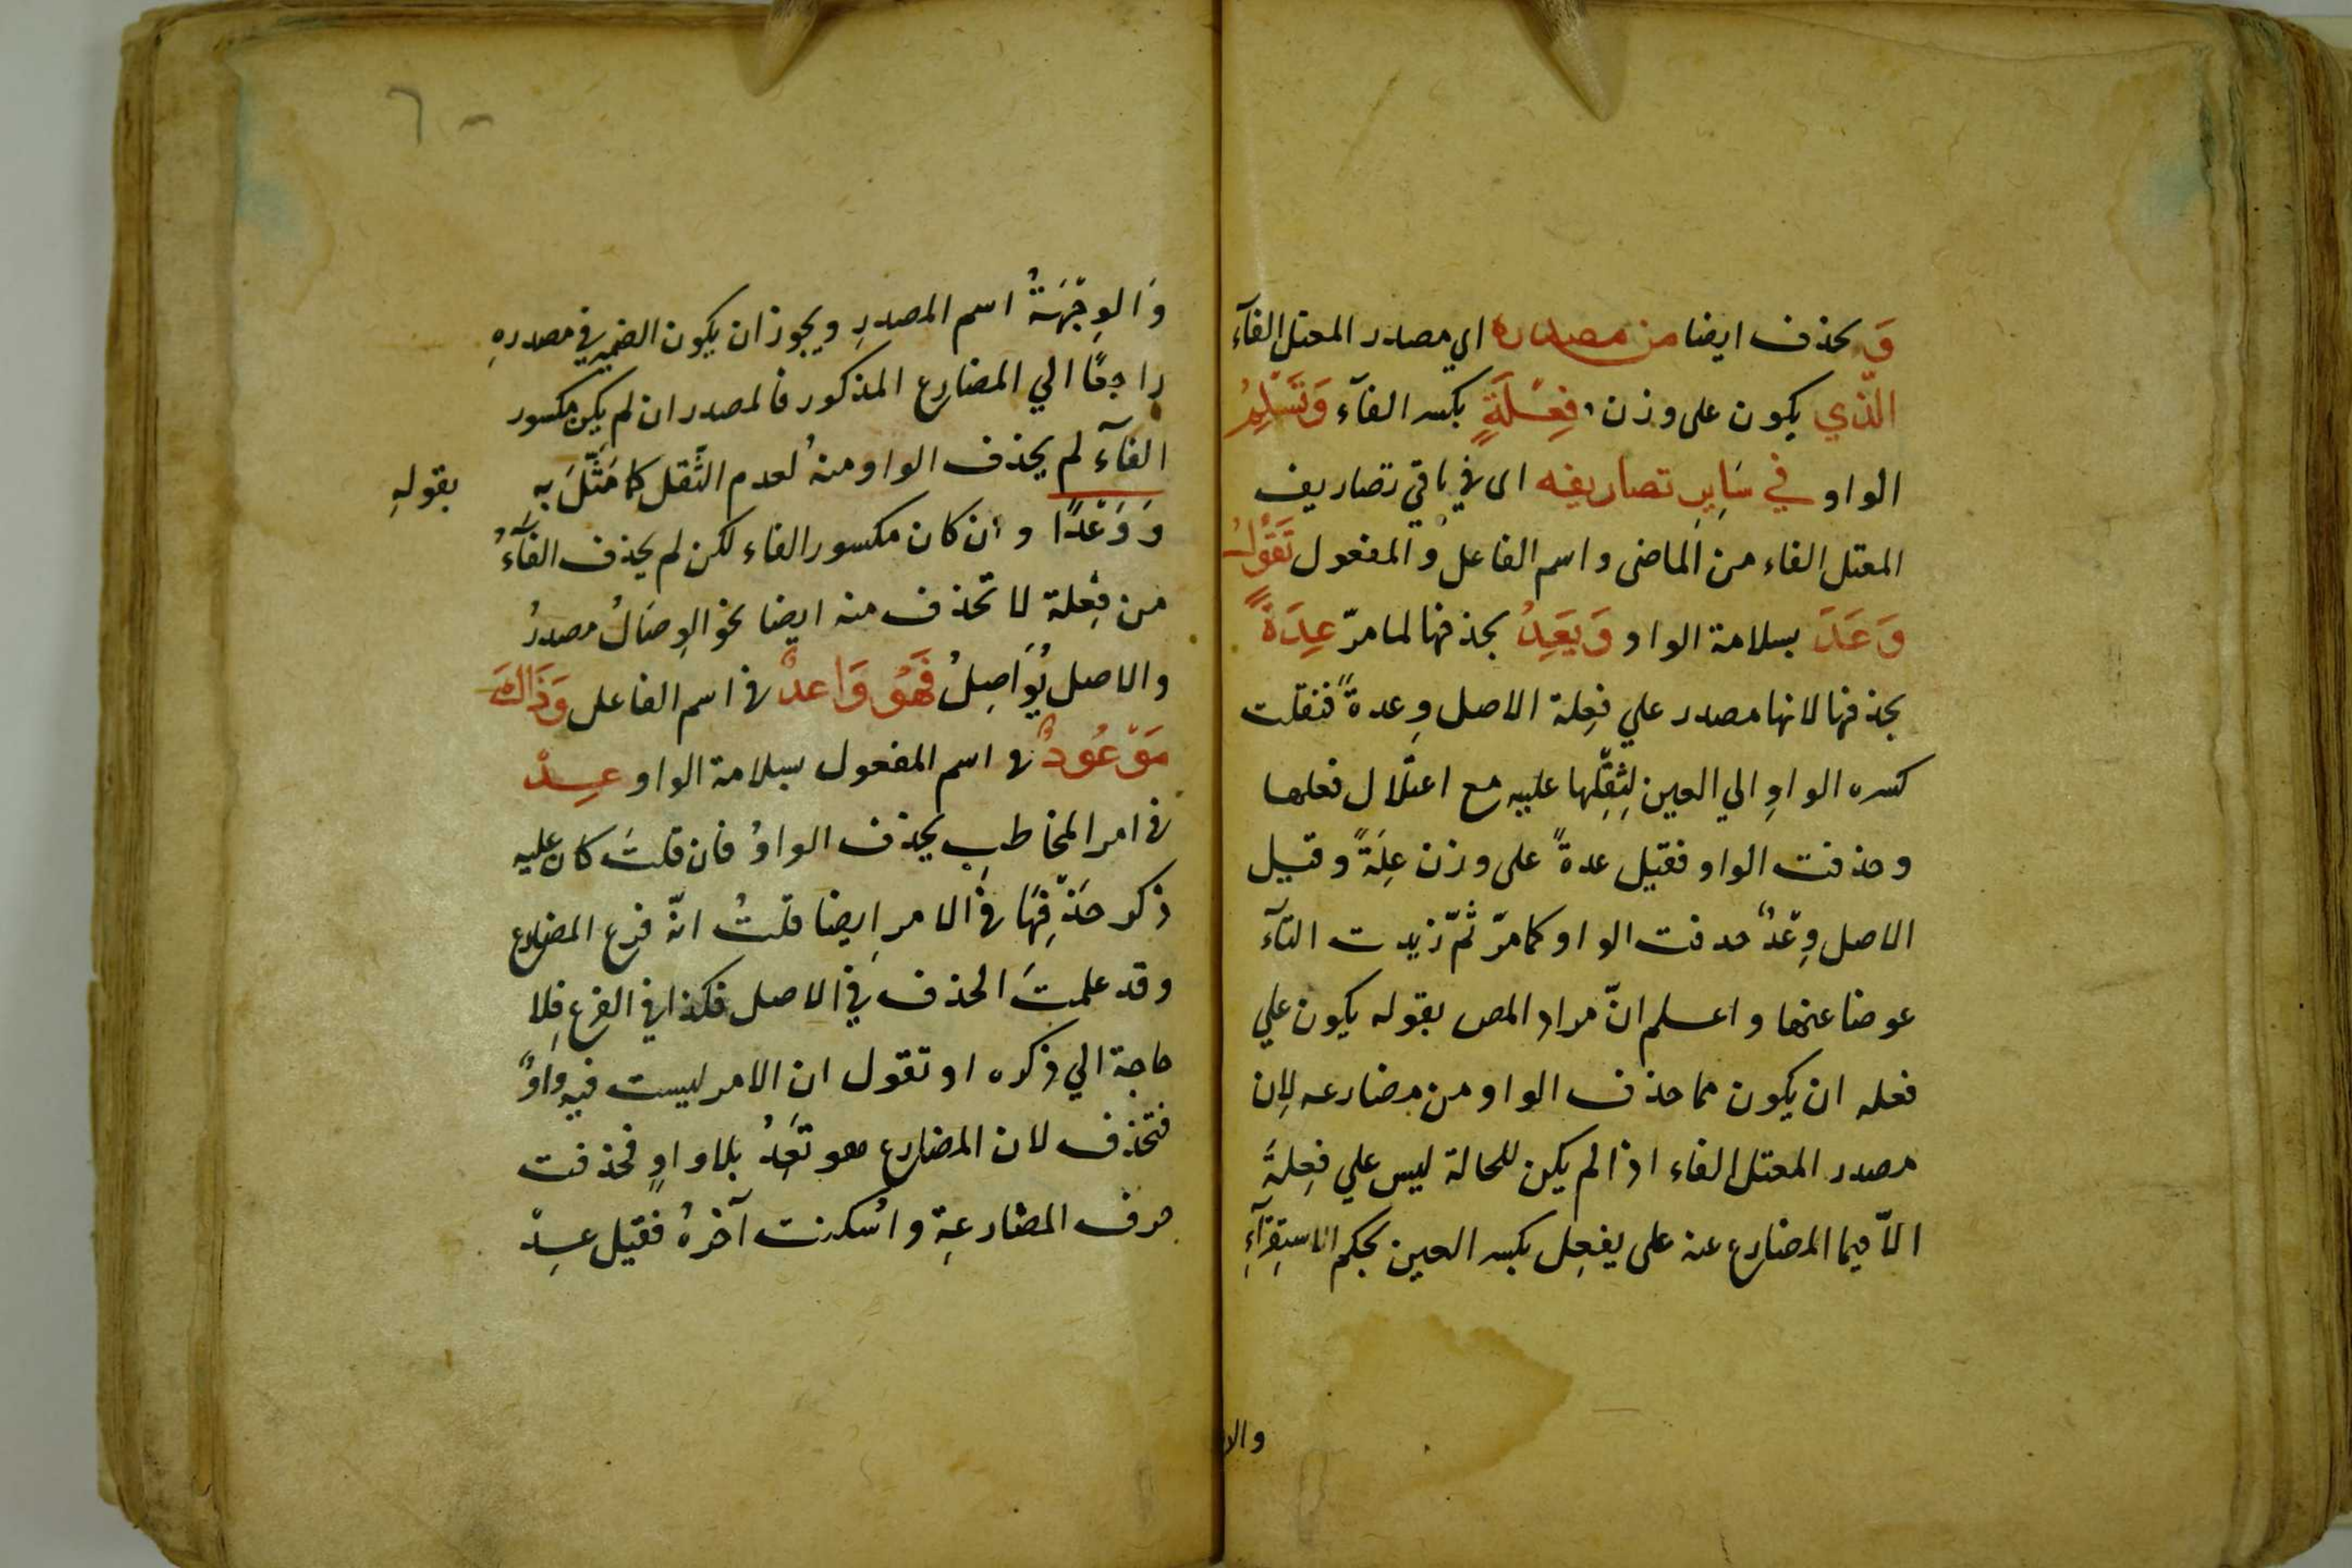 وَ يحذف ايضا من مصدره اي مصدر المعتل الفآء
الّذي يكون على وزن فِعْلَةٍ بكسر الفآء وَتَسْلِمُ
الواو في سَايِرِ تصاريفه اى في باقي تصاريف
المعتل الفاء من الماضى و اسم الفاعل و المفعول تَقُولُ
وَعَدَ بسلامة الواو وَيَعِدُ بحذفها لما مرّ عِدَةً
بحذفها لانها مصدر علي فِعلة الاصل وِعدةً فنقلت
كسره الواوِ الي العين لِثِقَلِها عليه مع اعتلال فعلها
وحذفت الواو فقيل عدةً على وزن عِلَةً وقيل
الاصل وِعْدٌ حدفت الواو كما مرّ ثمّ زيدت التآء
عوضا عنها و اعلم انّ مراد المص بقوله يكون علي
فعله ان يكون مما حذف الواو من مضارعه لان
مصدر المعتل الفاء اذا لم يكن للحالة ليس علي فِعلةً
الاّ فيما المضارع عنه على يفعِل بكسر العين بحكم الاستِقرآءِ
والا
٦٠
وَالوِجْهَةُ اسم المصدرِ ويجوز ان يكون الضمير في مصدرهِ
راجعًا الي المضارع المذكور فالمصدر ان لم يكن مكسور
الفآء لم يحذف الواو منهُ لعدم الثّقل كما مَثّلَ بهِ بقولهِ
وَ وَعْدًا و ان كان مكسور الفاء لكن لم يحذف الفآءُ
من فِعْلة لا تحذف منه ايضا نحو الوِصَالُ مصدرُ
والاصل يُوَاصِلُ فَهُو وَاعدٌ في اسم الفاعل وَذَالكَ
مَوْعُودٌ في اسم المفعول بسلامة الواو عِدْ
في امر المخاطب يحذف الواوُ فان قلتَ كان عليه
ذكر حَذْفِهَا في الامر ايضا قلتُ انّه فرع المضارع
وقد علمتَ الحذف في الاصل فكذا في الفرع فلا
حاجة الي ذكره او تقول ان الامر ليست فيه واوٌ
فتحذف لان المضارع هو تَعِدُ بلا واوٍ فحذفت
حرف المضارعةِ و اُسكنت آخرهُ فقيل عِدْ